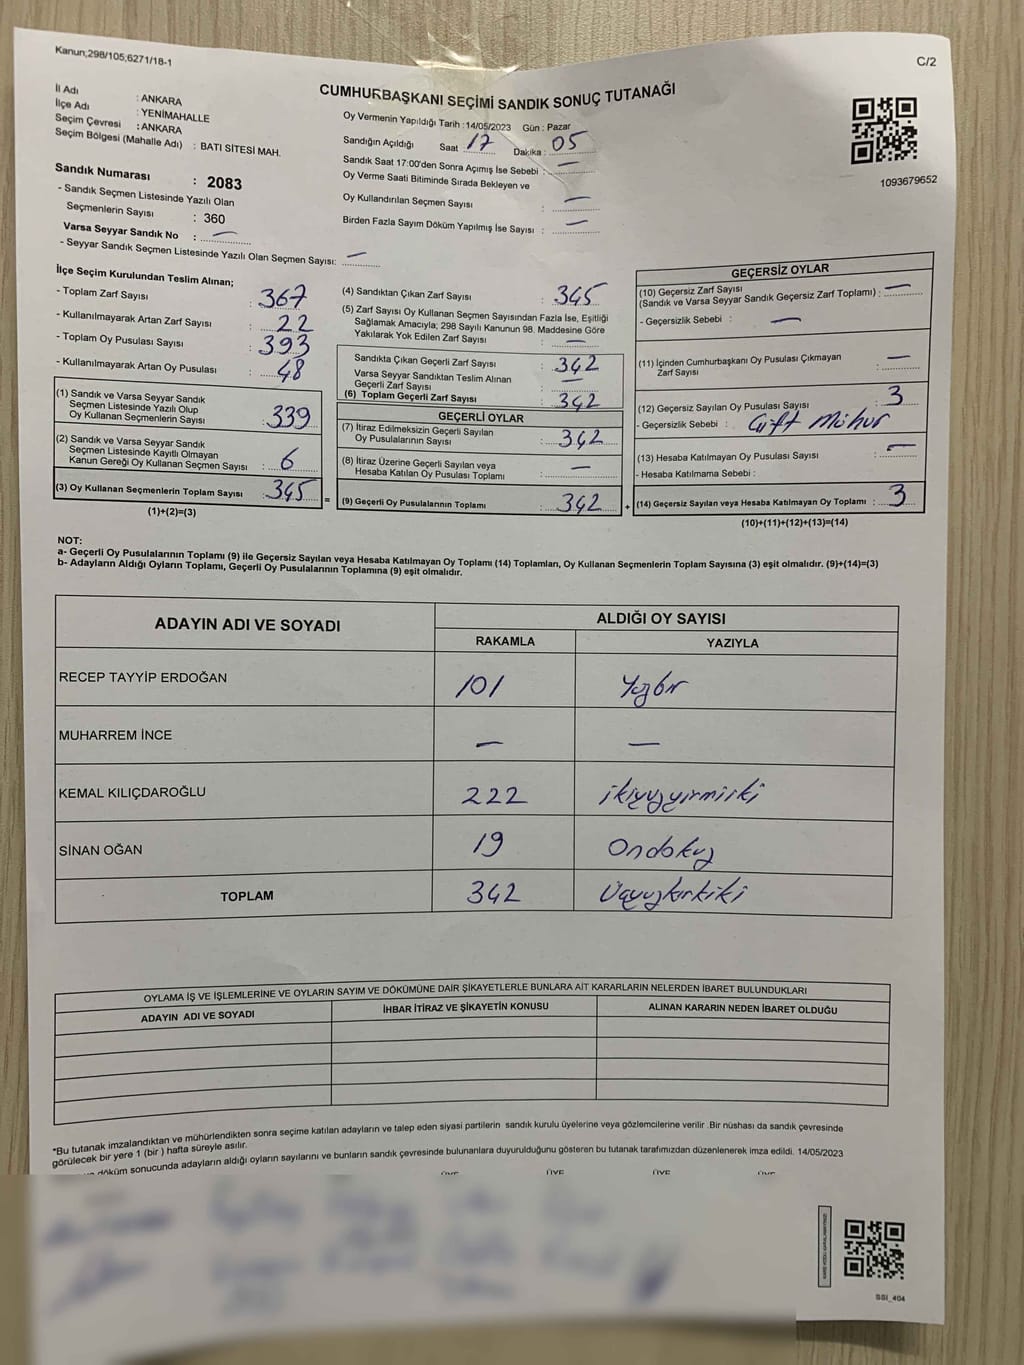 Kanun;298/105;6271/18-1
C/2
CUMHURBAŞKANI SEÇİMİ SANDIK SONUÇ TUTANAĞI
İl Adı : ANKARA
İlçe Adı : YENİMAHALLE
Seçim Çevresi : ANKARA
Seçim Bölgesi (Mahalle Adı) : BATI SİTESİ MAH.
Oy Vermenin Yapıldığı Tarih : 14/05/2023 Gün : Pazar
Sandığın Açıldığı Saat 17 Dakika : 05
Sandık Saat 17:00'den Sonra Açımış İse Sebebi : —
Oy Verme Saati Bitiminde Sırada Bekleyen ve
Oy Kullandırılan Seçmen Sayısı : —
Birden Fazla Sayım Döküm Yapılmış İse Sayısı : —
1093679652
Sandık Numarası : 2083
- Sandık Seçmen Listesinde Yazılı Olan
Seçmenlerin Sayısı : 360
Varsa Seyyar Sandık No : —
- Seyyar Sandık Seçmen Listesinde Yazılı Olan Seçmen Sayısı: —
İlçe Seçim Kurulundan Teslim Alınan;
- Toplam Zarf Sayısı : 367
- Kullanılmayarak Artan Zarf Sayısı : 22
- Toplam Oy Pusulası Sayısı : 393
- Kullanılmayarak Artan Oy Pusulası : 48
(1) Sandık ve Varsa Seyyar Sandık
Seçmen Listesinde Yazılı Olup
Oy Kullanan Seçmenlerin Sayısı : 339
(2) Sandık ve Varsa Seyyar Sandık
Seçmen Listesinde Kayıtlı Olmayan
Kanun Gereği Oy Kullanan Seçmen Sayısı : 6
(3) Oy Kullanan Seçmenlerin Toplam Sayısı : 345 =
(1)+(2)=(3)
(4) Sandıktan Çıkan Zarf Sayısı : 345
(5) Zarf Sayısı Oy Kullanan Seçmen Sayısından Fazla İse, Eşitliği
Sağlamak Amacıyla; 298 Sayılı Kanunun 98. Maddesine Göre
Yakılarak Yok Edilen Zarf Sayısı : —
Sandıkta Çıkan Geçerli Zarf Sayısı : 342
Varsa Seyyar Sandıktan Teslim Alınan
Geçerli Zarf Sayısı : —
(6) Toplam Geçerli Zarf Sayısı : 342
GEÇERLİ OYLAR
(7) İtiraz Edilmeksizin Geçerli Sayılan
Oy Pusulalarının Sayısı : 342
(8) İtiraz Üzerine Geçerli Sayılan veya
Hesaba Katılan Oy Pusulası Toplamı : —
(9) Geçerli Oy Pusulalarının Toplamı : 342 +
GEÇERSİZ OYLAR
(10) Geçersiz Zarf Sayısı
(Sandık ve Varsa Seyyar Sandık Geçersiz Zarf Toplamı) : —
- Geçersizlik Sebebi : —
(11) İçinden Cumhurbaşkanı Oy Pusulası Çıkmayan
Zarf Sayısı : —
(12) Geçersiz Sayılan Oy Pusulası Sayısı : 3
- Geçersizlik Sebebi : Çift Mühür
(13) Hesaba Katılmayan Oy Pusulası Sayısı : —
- Hesaba Katılmama Sebebi :
(14) Geçersiz Sayılan veya Hesaba Katılmayan Oy Toplamı : 3
(10)+(11)+(12)+(13)=(14)
NOT:
a- Geçerli Oy Pusulalarının Toplamı (9) ile Geçersiz Sayılan veya Hesaba Katılmayan Oy Toplamı (14) Toplamları, Oy Kullanan Seçmenlerin Toplam Sayısına (3) eşit olmalıdır. (9)+(14)=(3)
b- Adayların Aldığı Oyların Toplamı, Geçerli Oy Pusulalarının Toplamına (9) eşit olmalıdır.
ADAYIN ADI VE SOYADI
ALDIĞI OY SAYISI
RAKAMLA YAZIYLA
RECEP TAYYİP ERDOĞAN 101 Yüzbir
MUHARREM İNCE — —
KEMAL KILIÇDAROĞLU 222 ikiyüzyirmiiki
SİNAN OĞAN 19 Ondokuz
TOPLAM 342 Üçyüzkırkiki
OYLAMA İŞ VE İŞLEMLERİNE VE OYLARIN SAYIM VE DÖKÜMÜNE DAİR ŞİKAYETLERLE BUNLARA AİT KARARLARIN NELERDEN İBARET BULUNDUKLARI
ADAYIN ADI VE SOYADI İHBAR İTİRAZ VE ŞİKAYETİN KONUSU ALINAN KARARIN NEDEN İBARET OLDUĞU
*Bu tutanak imzalandıktan ve mühürlendikten sonra seçime katılan adayların ve talep eden siyasi partilerin sandık kurulu üyelerine veya gözlemcilerine verilir .Bir nüshası da sandık çevresinde
görülecek bir yere 1 (bir ) hafta süreyle asılır.
döküm sonucunda adayların aldığı oyların sayılarını ve bunların sandık çevresinde bulunanlara duyurulduğunu gösteren bu tutanak tarafımızdan düzenlenerek imza edildi. 14/05/2023
ÜYE ÜYE ÜYE ÜYE
SSI_404